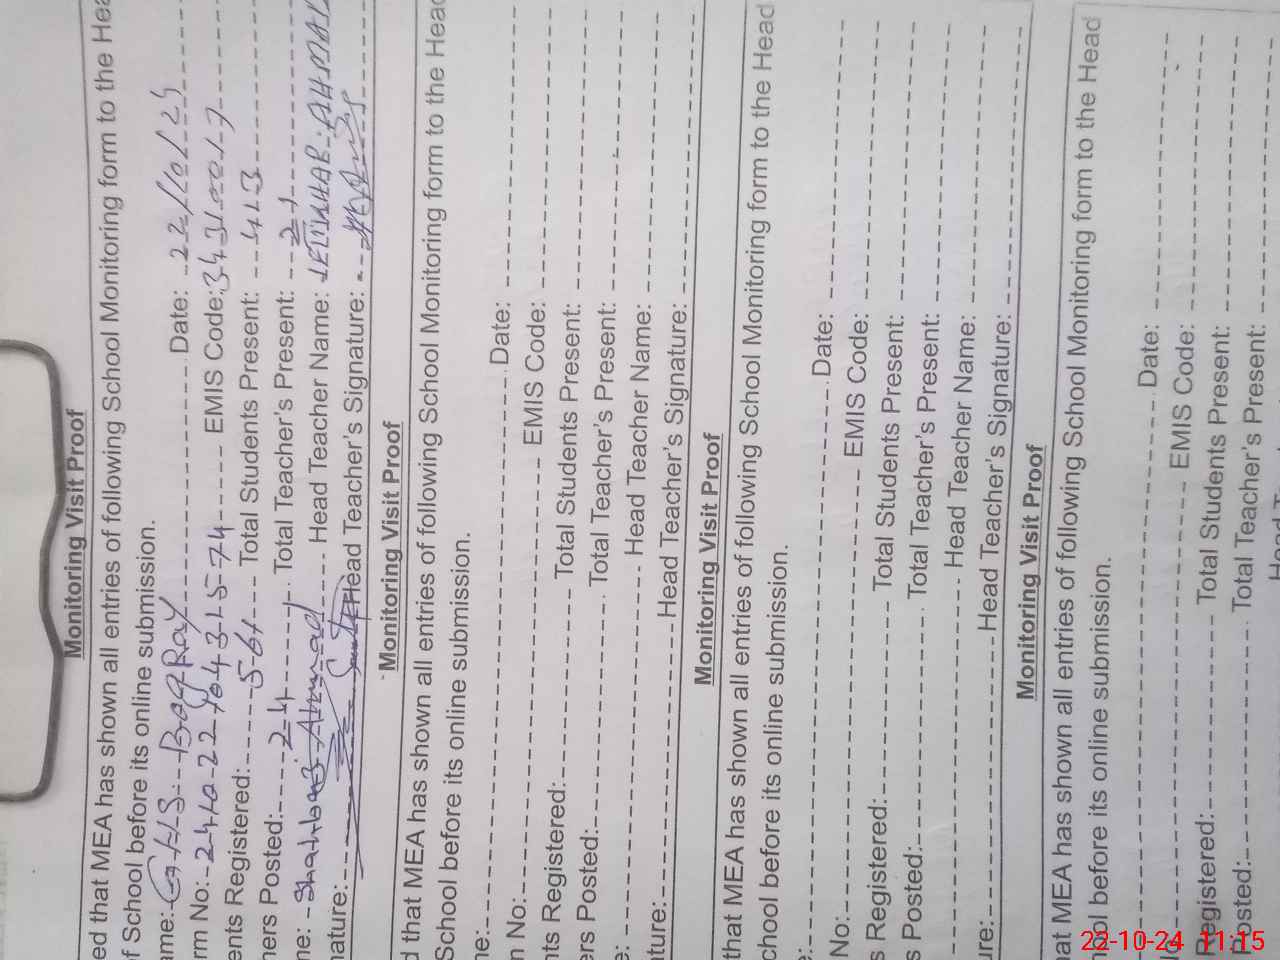 Monitoring Visit Proof
ed that MEA has shown all entries of following School Monitoring form to the Hea
f School before its online submission.
ame: GHS Bag Ray Date: 22/10/24
rm No: 2410-22 EMIS Code: 34310017
ents Registered: 561 Total Students Present: 413
ners Posted: 24 Total Teacher's Present: 21
me: Shahbaz Ahmad Head Teacher Name: AHMAD
nature: Head Teacher's Signature:
Monitoring Visit Proof
d that MEA has shown all entries of following School Monitoring form to the Head
School before its online submission.
ne: Date:
n No: EMIS Code:
nts Registered: Total Students Present:
ers Posted: Total Teacher's Present:
e: Head Teacher Name:
ture: Head Teacher's Signature:
Monitoring Visit Proof
that MEA has shown all entries of following School Monitoring form to the Head
chool before its online submission.
e: Date:
No: EMIS Code:
s Registered: Total Students Present:
s Posted: Total Teacher's Present:
Head Teacher Name:
ure: Head Teacher's Signature:
Monitoring Visit Proof
at MEA has shown all entries of following School Monitoring form to the Head
ool before its online submission.
Date:
EMIS Code:
Registered: Total Students Present:
Posted: Total Teacher's Present:
22-10-24 11:15